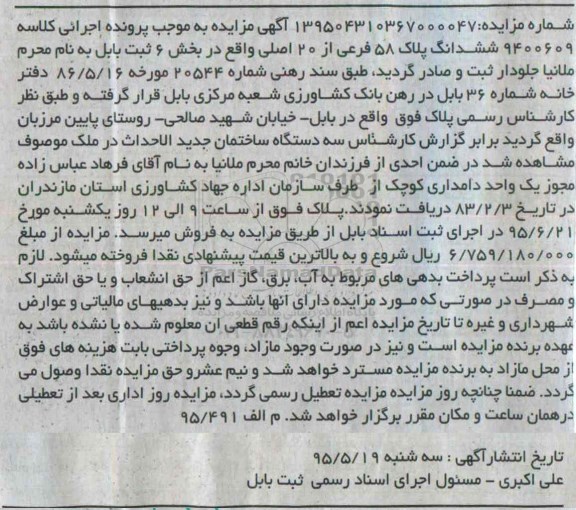 شماره مزایده:۱۳۹۵۰۴۳۱۰۳۶۷۰۰۰۰۴۷ آگهی مزایده به موجب پرونده اجرائی کلاسه
۹۴۰۰۶۰۹ ششدانگ پلاک ۵۸ فرعی از ۲۰ اصلی واقع در بخش ۶ ثبت بابل به نام محرم
ملانیا جلودار ثبت و صادر گردید، طبق سند رهنی شماره ۲۰۵۴۴ مورخه ۸۶/۵/۱۶ دفتر
خانه شماره ۳۶ بابل در رهن بانک کشاورزی شعبه مرکزی بابل قرار گرفته و طبق نظر
کارشناس رسمی پلاک فوق واقع در بابل- خیابان شهید صالحی- روستای پایین مرزبان
واقع گردید برابر گزارش کارشناس سه دستگاه ساختمان جدید الاحداث در ملک موصوف
مشاهده شد در ضمن احدی از فرزندان خانم محرم ملانیا به نام آقای فرهاد عباس زاده
مجوز یک واحد دامداری کوچک از طرف سازمان اداره جهاد کشاورزی استان مازندران
در تاریخ ۸۳/۲/۳ دریافت نمودند.پلاک فوق از ساعت ۹ الی ۱۲ روز یکشنبه مورخ
۹۵/۶/۲۱ در اجرای ثبت اسناد بابل از طریق مزایده به فروش میرسد. مزایده از مبلغ
۶/۷۵۹/۱۸۰/۰۰۰ ریال شروع و به بالاترین قیمت پیشنهادی نقدا فروخته میشود. لازم
به ذکر است پرداخت بدهی های مربوط به آب، برق، گاز اعم از حق انشعاب و یا حق اشتراک
و مصرف در صورتی که مورد مزایده دارای آنها باشد و نیز بدهیهای مالیاتی و عوارض
شهرداری و غیره تا تاریخ مزایده اعم از اینکه رقم قطعی ان معلوم شده یا نشده باشد به
عهده برنده مزایده است و نیز در صورت وجود مازاد، وجوه پرداختی بابت هزینه های فوق
از محل مازاد به برنده مزایده مسترد خواهد شد و نیم عشرو حق مزایده نقدا وصول می
گردد. ضمنا چنانچه روز مزایده مزایده تعطیل رسمی گردد، مزایده روز اداری بعد از تعطیلی
درهمان ساعت و مکان مقرر برگزار خواهد شد. م الف ۹۵/۴۹۱
تاریخ انتشارآگهی : سه شنبه ۹۵/۵/۱۹
علی اکبری - مسئول اجرای اسناد رسمی ثبت بابل
ParsNamadData